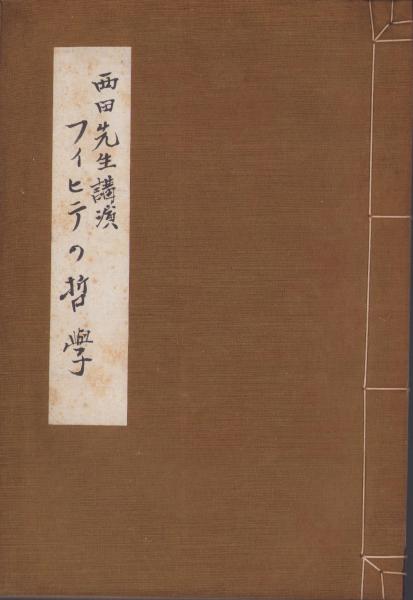 西田先生講演
フィヒテの哲學